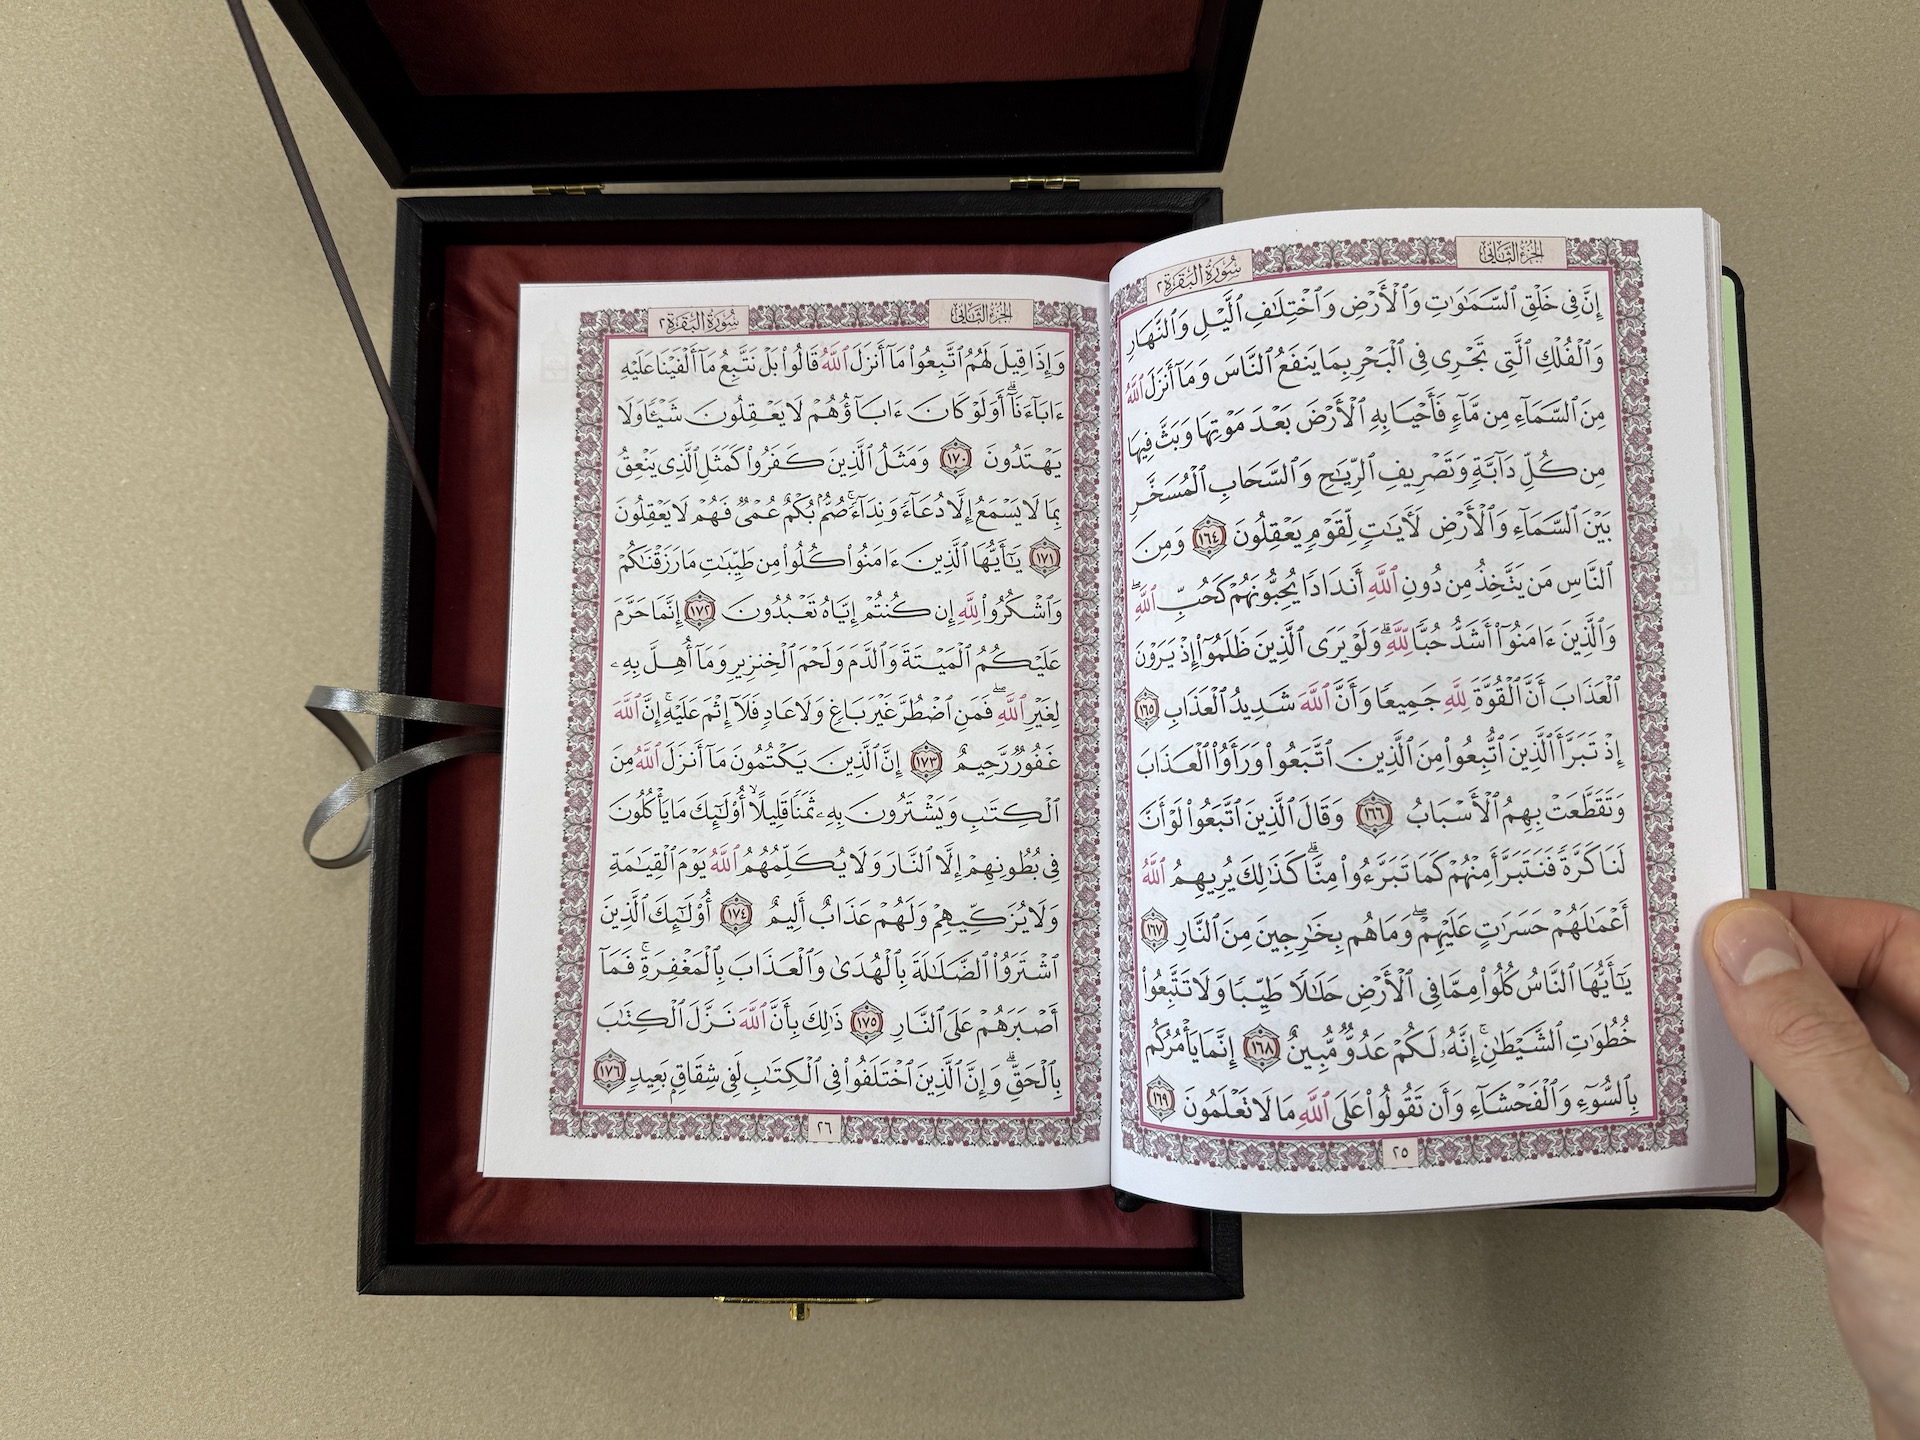 سُورَةُ البَقَرَة ٢
الجُزءُ الثَّانِي
إِنَّ فِي خَلْقِ ٱلسَّمَٰوَٰتِ وَٱلْأَرْضِ وَٱخْتِلَٰفِ ٱلَّيْلِ وَٱلنَّهَارِ
وَٱلْفُلْكِ ٱلَّتِي تَجْرِي فِي ٱلْبَحْرِ بِمَا يَنفَعُ ٱلنَّاسَ وَمَآ أَنزَلَ ٱللَّهُ
مِنَ ٱلسَّمَآءِ مِن مَّآءٍ فَأَحْيَا بِهِ ٱلْأَرْضَ بَعْدَ مَوْتِهَا وَبَثَّ فِيهَا
مِن كُلِّ دَآبَّةٍ وَتَصْرِيفِ ٱلرِّيَٰحِ وَٱلسَّحَابِ ٱلْمُسَخَّرِ
بَيْنَ ٱلسَّمَآءِ وَٱلْأَرْضِ لَأٓيَٰتٍ لِّقَوْمٍ يَعْقِلُونَ ١٦٤ وَمِنَ
ٱلنَّاسِ مَن يَتَّخِذُ مِن دُونِ ٱللَّهِ أَندَادًا يُحِبُّونَهُمْ كَحُبِّ ٱللَّهِۖ
وَٱلَّذِينَ ءَامَنُوٓا۟ أَشَدُّ حُبًّا لِّلَّهِۗ وَلَوْ يَرَى ٱلَّذِينَ ظَلَمُوٓا۟ إِذْ يَرَوْنَ
ٱلْعَذَابَ أَنَّ ٱلْقُوَّةَ لِلَّهِ جَمِيعًا وَأَنَّ ٱللَّهَ شَدِيدُ ٱلْعَذَابِ ١٦٥
إِذْ تَبَرَّأَ ٱلَّذِينَ ٱتُّبِعُوا۟ مِنَ ٱلَّذِينَ ٱتَّبَعُوا۟ وَرَأَوُا۟ ٱلْعَذَابَ
وَتَقَطَّعَتْ بِهِمُ ٱلْأَسْبَابُ ١٦٦ وَقَالَ ٱلَّذِينَ ٱتَّبَعُوا۟ لَوْ أَنَّ
لَنَا كَرَّةً فَنَتَبَرَّأَ مِنْهُمْ كَمَا تَبَرَّءُوا۟ مِنَّاۗ كَذَٰلِكَ يُرِيهِمُ ٱللَّهُ
أَعْمَٰلَهُمْ حَسَرَٰتٍ عَلَيْهِمْۖ وَمَا هُم بِخَٰرِجِينَ مِنَ ٱلنَّارِ ١٦٧
يَٰٓأَيُّهَا ٱلنَّاسُ كُلُوا۟ مِمَّا فِي ٱلْأَرْضِ حَلَٰلًا طَيِّبًا وَلَا تَتَّبِعُوا۟
خُطُوَٰتِ ٱلشَّيْطَٰنِۚ إِنَّهُۥ لَكُمْ عَدُوٌّ مُّبِينٌ ١٦٨ إِنَّمَا يَأْمُرُكُم
بِٱلسُّوٓءِ وَٱلْفَحْشَآءِ وَأَن تَقُولُوا۟ عَلَى ٱللَّهِ مَا لَا تَعْلَمُونَ ١٦٩
٢٥
سُورَةُ البَقَرَة ٢
الجُزءُ الثَّانِي
وَإِذَا قِيلَ لَهُمُ ٱتَّبِعُوا۟ مَآ أَنزَلَ ٱللَّهُ قَالُوا۟ بَلْ نَتَّبِعُ مَآ أَلْفَيْنَا عَلَيْهِ
ءَابَآءَنَآۗ أَوَلَوْ كَانَ ءَابَآؤُهُمْ لَا يَعْقِلُونَ شَيْـًٔا وَلَا
يَهْتَدُونَ ١٧٠ وَمَثَلُ ٱلَّذِينَ كَفَرُوا۟ كَمَثَلِ ٱلَّذِي يَنْعِقُ
بِمَا لَا يَسْمَعُ إِلَّا دُعَآءً وَنِدَآءًۚ صُمٌّۢ بُكْمٌ عُمْيٌ فَهُمْ لَا يَعْقِلُونَ
١٧١ يَٰٓأَيُّهَا ٱلَّذِينَ ءَامَنُوا۟ كُلُوا۟ مِن طَيِّبَٰتِ مَا رَزَقْنَٰكُمْ
وَٱشْكُرُوا۟ لِلَّهِ إِن كُنتُمْ إِيَّاهُ تَعْبُدُونَ ١٧٢ إِنَّمَا حَرَّمَ
عَلَيْكُمُ ٱلْمَيْتَةَ وَٱلدَّمَ وَلَحْمَ ٱلْخِنزِيرِ وَمَآ أُهِلَّ بِهِۦ
لِغَيْرِ ٱللَّهِۖ فَمَنِ ٱضْطُرَّ غَيْرَ بَاغٍ وَلَا عَادٍ فَلَآ إِثْمَ عَلَيْهِۚ إِنَّ ٱللَّهَ
غَفُورٌ رَّحِيمٌ ١٧٣ إِنَّ ٱلَّذِينَ يَكْتُمُونَ مَآ أَنزَلَ ٱللَّهُ مِنَ
ٱلْكِتَٰبِ وَيَشْتَرُونَ بِهِۦ ثَمَنًا قَلِيلًاۙ أُو۟لَٰٓئِكَ مَا يَأْكُلُونَ
فِي بُطُونِهِمْ إِلَّا ٱلنَّارَ وَلَا يُكَلِّمُهُمُ ٱللَّهُ يَوْمَ ٱلْقِيَٰمَةِ
وَلَا يُزَكِّيهِمْ وَلَهُمْ عَذَابٌ أَلِيمٌ ١٧٤ أُو۟لَٰٓئِكَ ٱلَّذِينَ
ٱشْتَرَوُا۟ ٱلضَّلَٰلَةَ بِٱلْهُدَىٰ وَٱلْعَذَابَ بِٱلْمَغْفِرَةِۚ فَمَآ
أَصْبَرَهُمْ عَلَى ٱلنَّارِ ١٧٥ ذَٰلِكَ بِأَنَّ ٱللَّهَ نَزَّلَ ٱلْكِتَٰبَ
بِٱلْحَقِّۗ وَإِنَّ ٱلَّذِينَ ٱخْتَلَفُوا۟ فِي ٱلْكِتَٰبِ لَفِي شِقَاقٍۭ بَعِيدٍ ١٧٦
٢٦